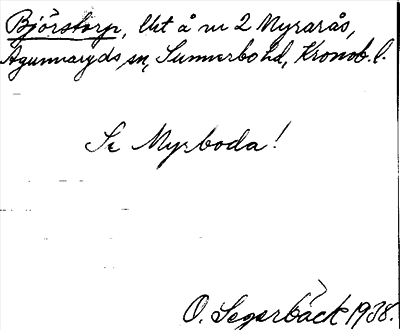 Björstorp, lht å nr 2 Myrarås,
Agunnaryds sn, Sunnerbo hd, Kronob. l.
Se Myrboda!
O. Segerbäck 1938.